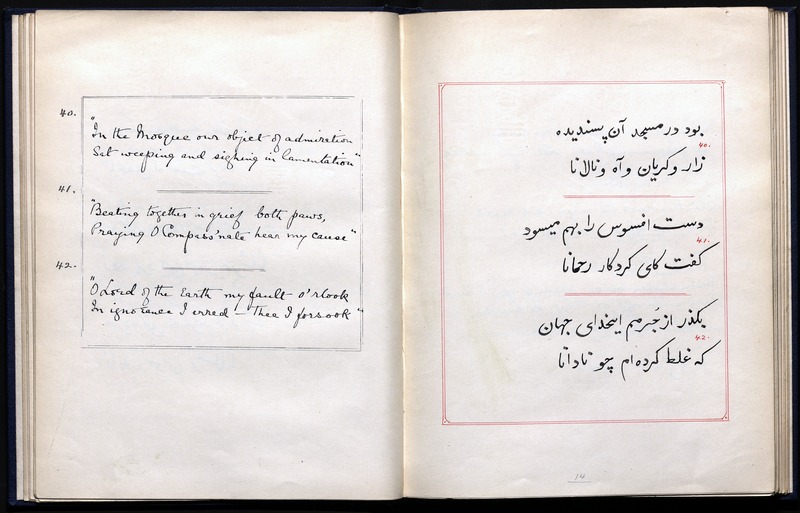 40.
"In the Mosque our object of admiration
Sat weeping and sighing in lamentation"
41.
"Beating together in grief both paws,
Praying O Compass'nate hear my cause"
42.
"O Lord of the Earth my fault o'rlook
In ignorance I erred – Thee I forsook"
بود در مسجد آن پسندیده
40.
زار و کریان و آه و نالانا
دست افسوس را بهم میسود
41.
کفت کای کردکار رحمانا
بکذر از جُرمم ایخدای جهان
42.
که غلط کرده‌ام چو نادانا
14